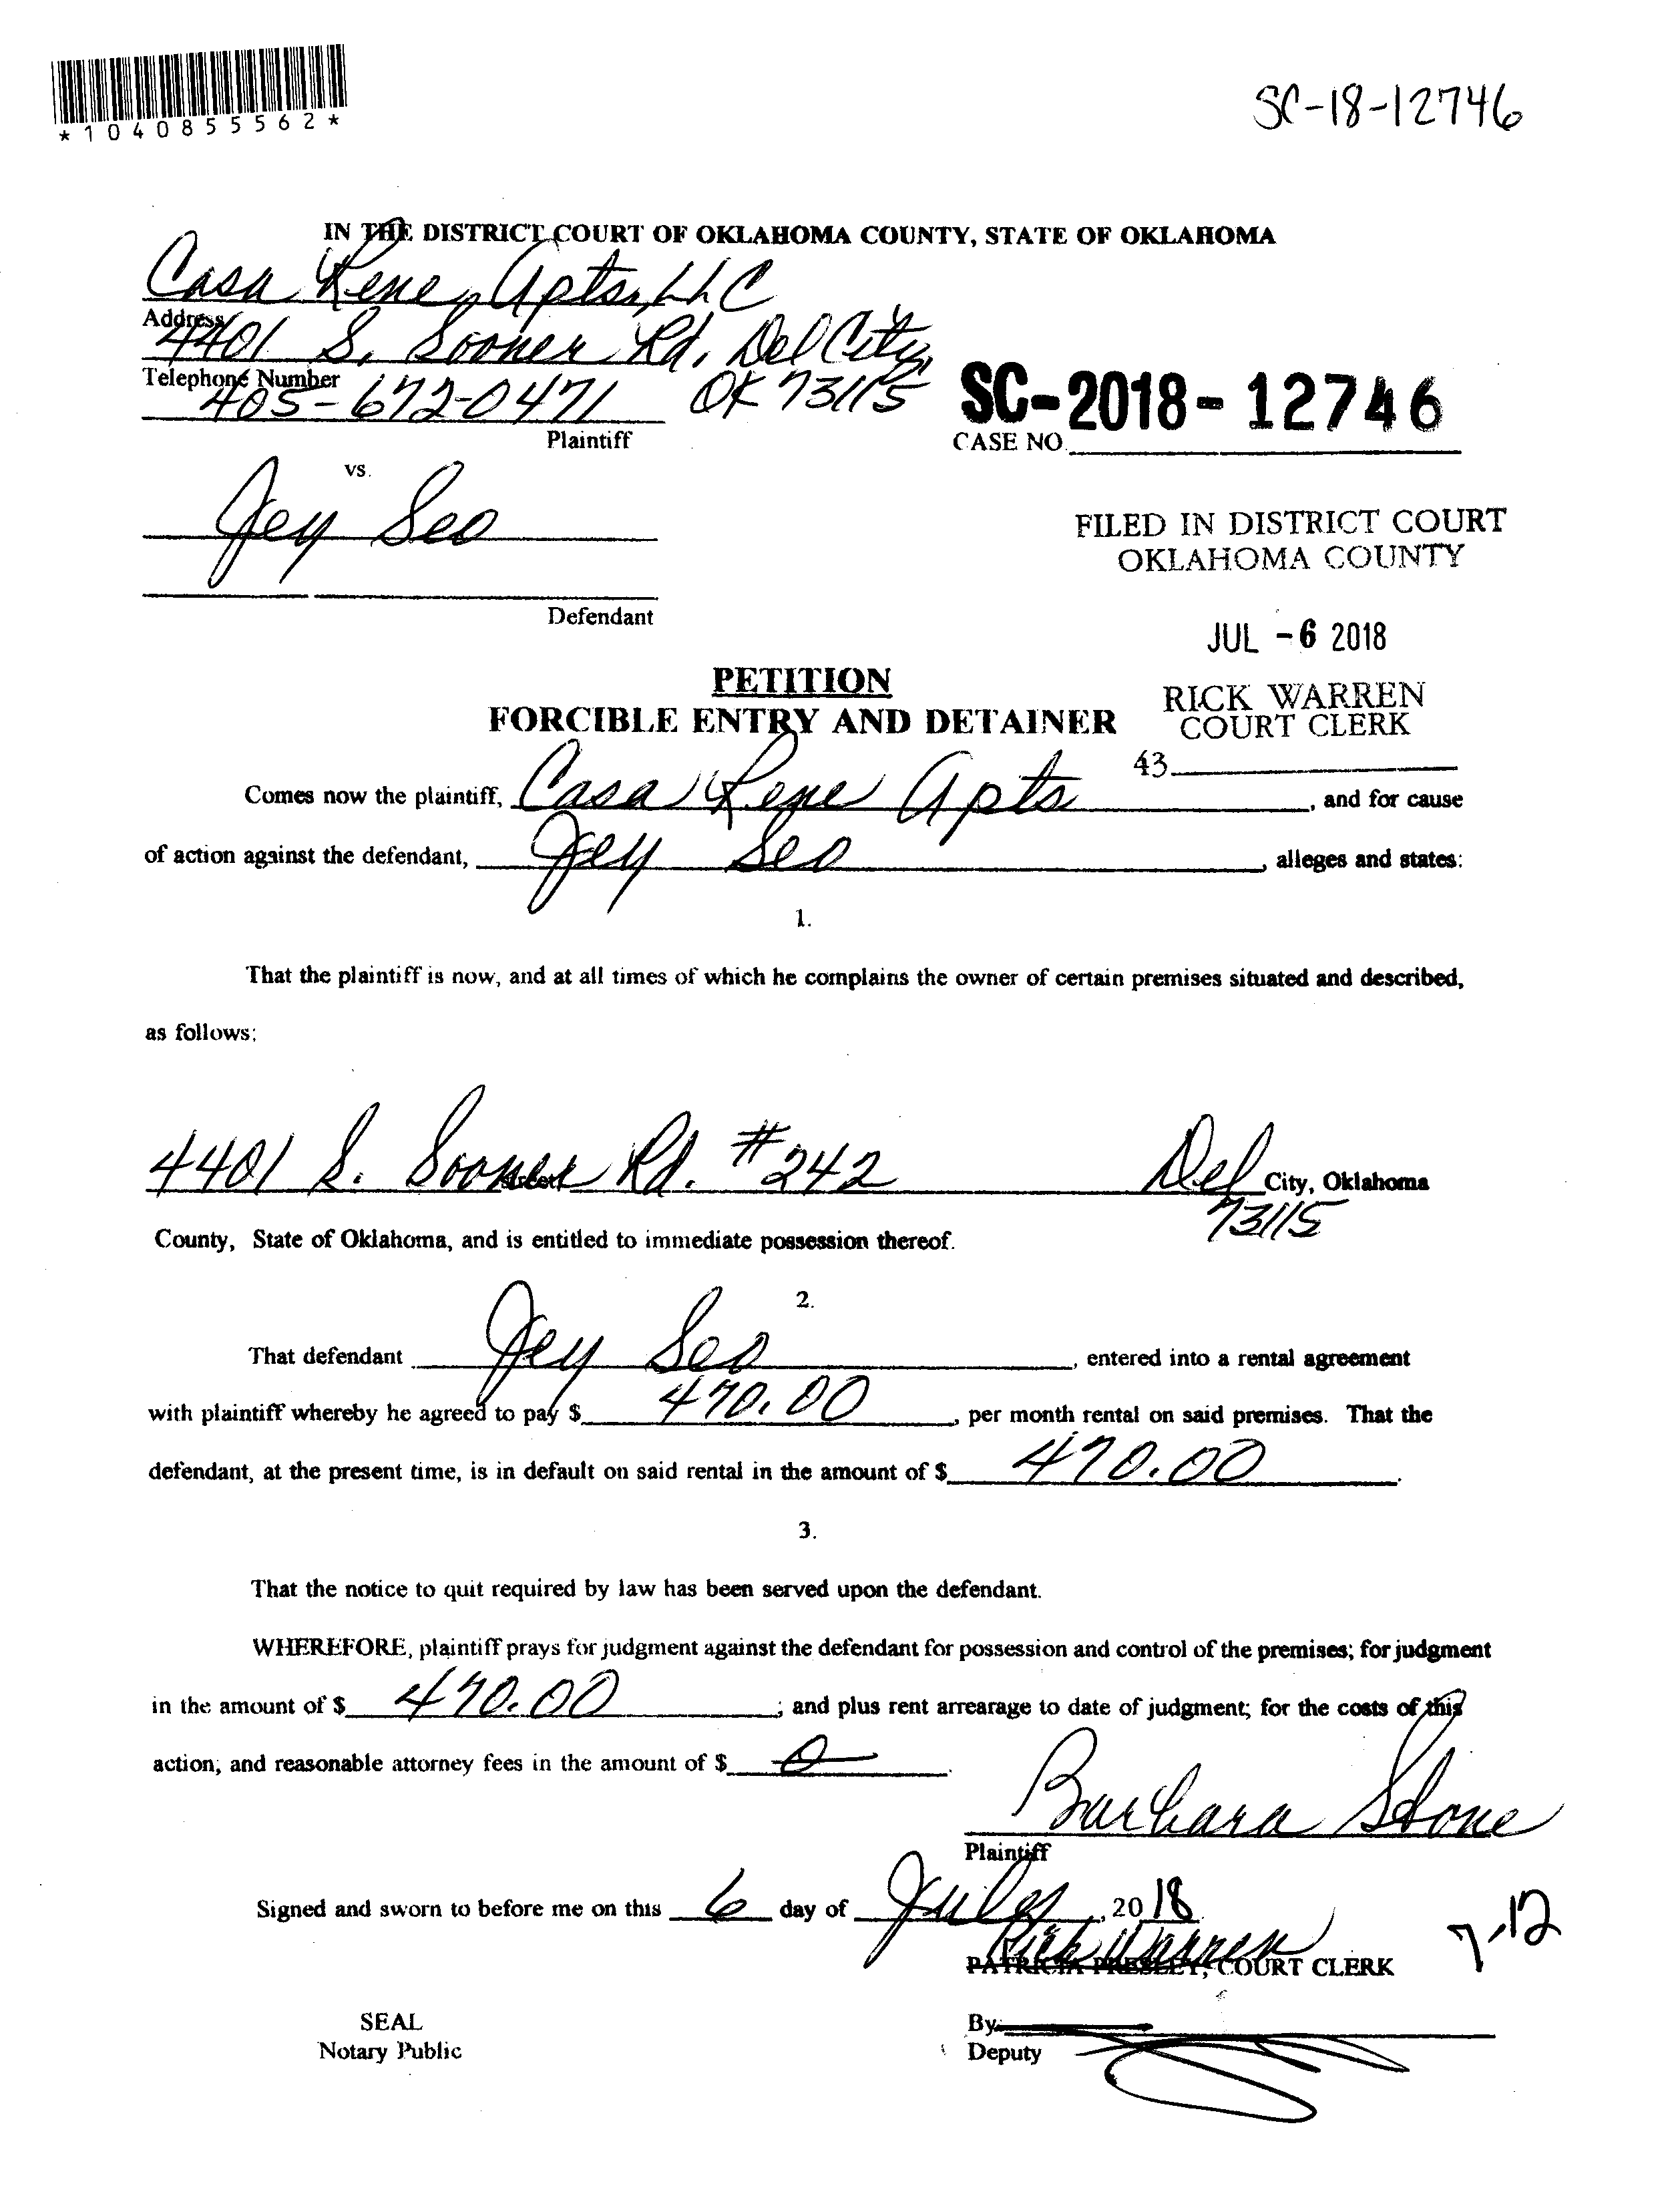 *1040855562*
SC-18-12746
IN THE DISTRICT COURT OF OKLAHOMA COUNTY, STATE OF OKLAHOMA
Casa Rene Apts, LLC
Address
4401 S. Sooner Rd, Del City,
Telephone Number
405-672-0471 OK 73115
Plaintiff
SC-2018-12746
CASE NO.
vs.
Jey Seo
Defendant
FILED IN DISTRICT COURT
OKLAHOMA COUNTY
JUL -6 2018
RICK WARREN
COURT CLERK
43
PETITION
FORCIBLE ENTRY AND DETAINER
Comes now the plaintiff, Casa Rene Apts, and for cause
of action against the defendant, Jey Seo, alleges and states:
1.
That the plaintiff is now, and at all times of which he complains the owner of certain premises situated and described,
as follows:
4401 S. Sooner Rd. #242 Del City, Oklahoma
Street
73115
County, State of Oklahoma, and is entitled to immediate possession thereof.
2.
That defendant Jey Seo, entered into a rental agreement
with plaintiff whereby he agreed to pay $ 470.00, per month rental on said premises. That the
defendant, at the present time, is in default on said rental in the amount of $ 470.00.
3.
That the notice to quit required by law has been served upon the defendant.
WHEREFORE, plaintiff prays for judgment against the defendant for possession and control of the premises; for judgment
in the amount of $ 470.00; and plus rent arrearage to date of judgment; for the costs of this
action; and reasonable attorney fees in the amount of $ 0.
Barbara Stone
Plaintiff
Signed and sworn to before me on this 6 day of July, 2018
Rick Warren
PATRICIA PRESLEY, COURT CLERK
7-12
SEAL
Notary Public
By
Deputy